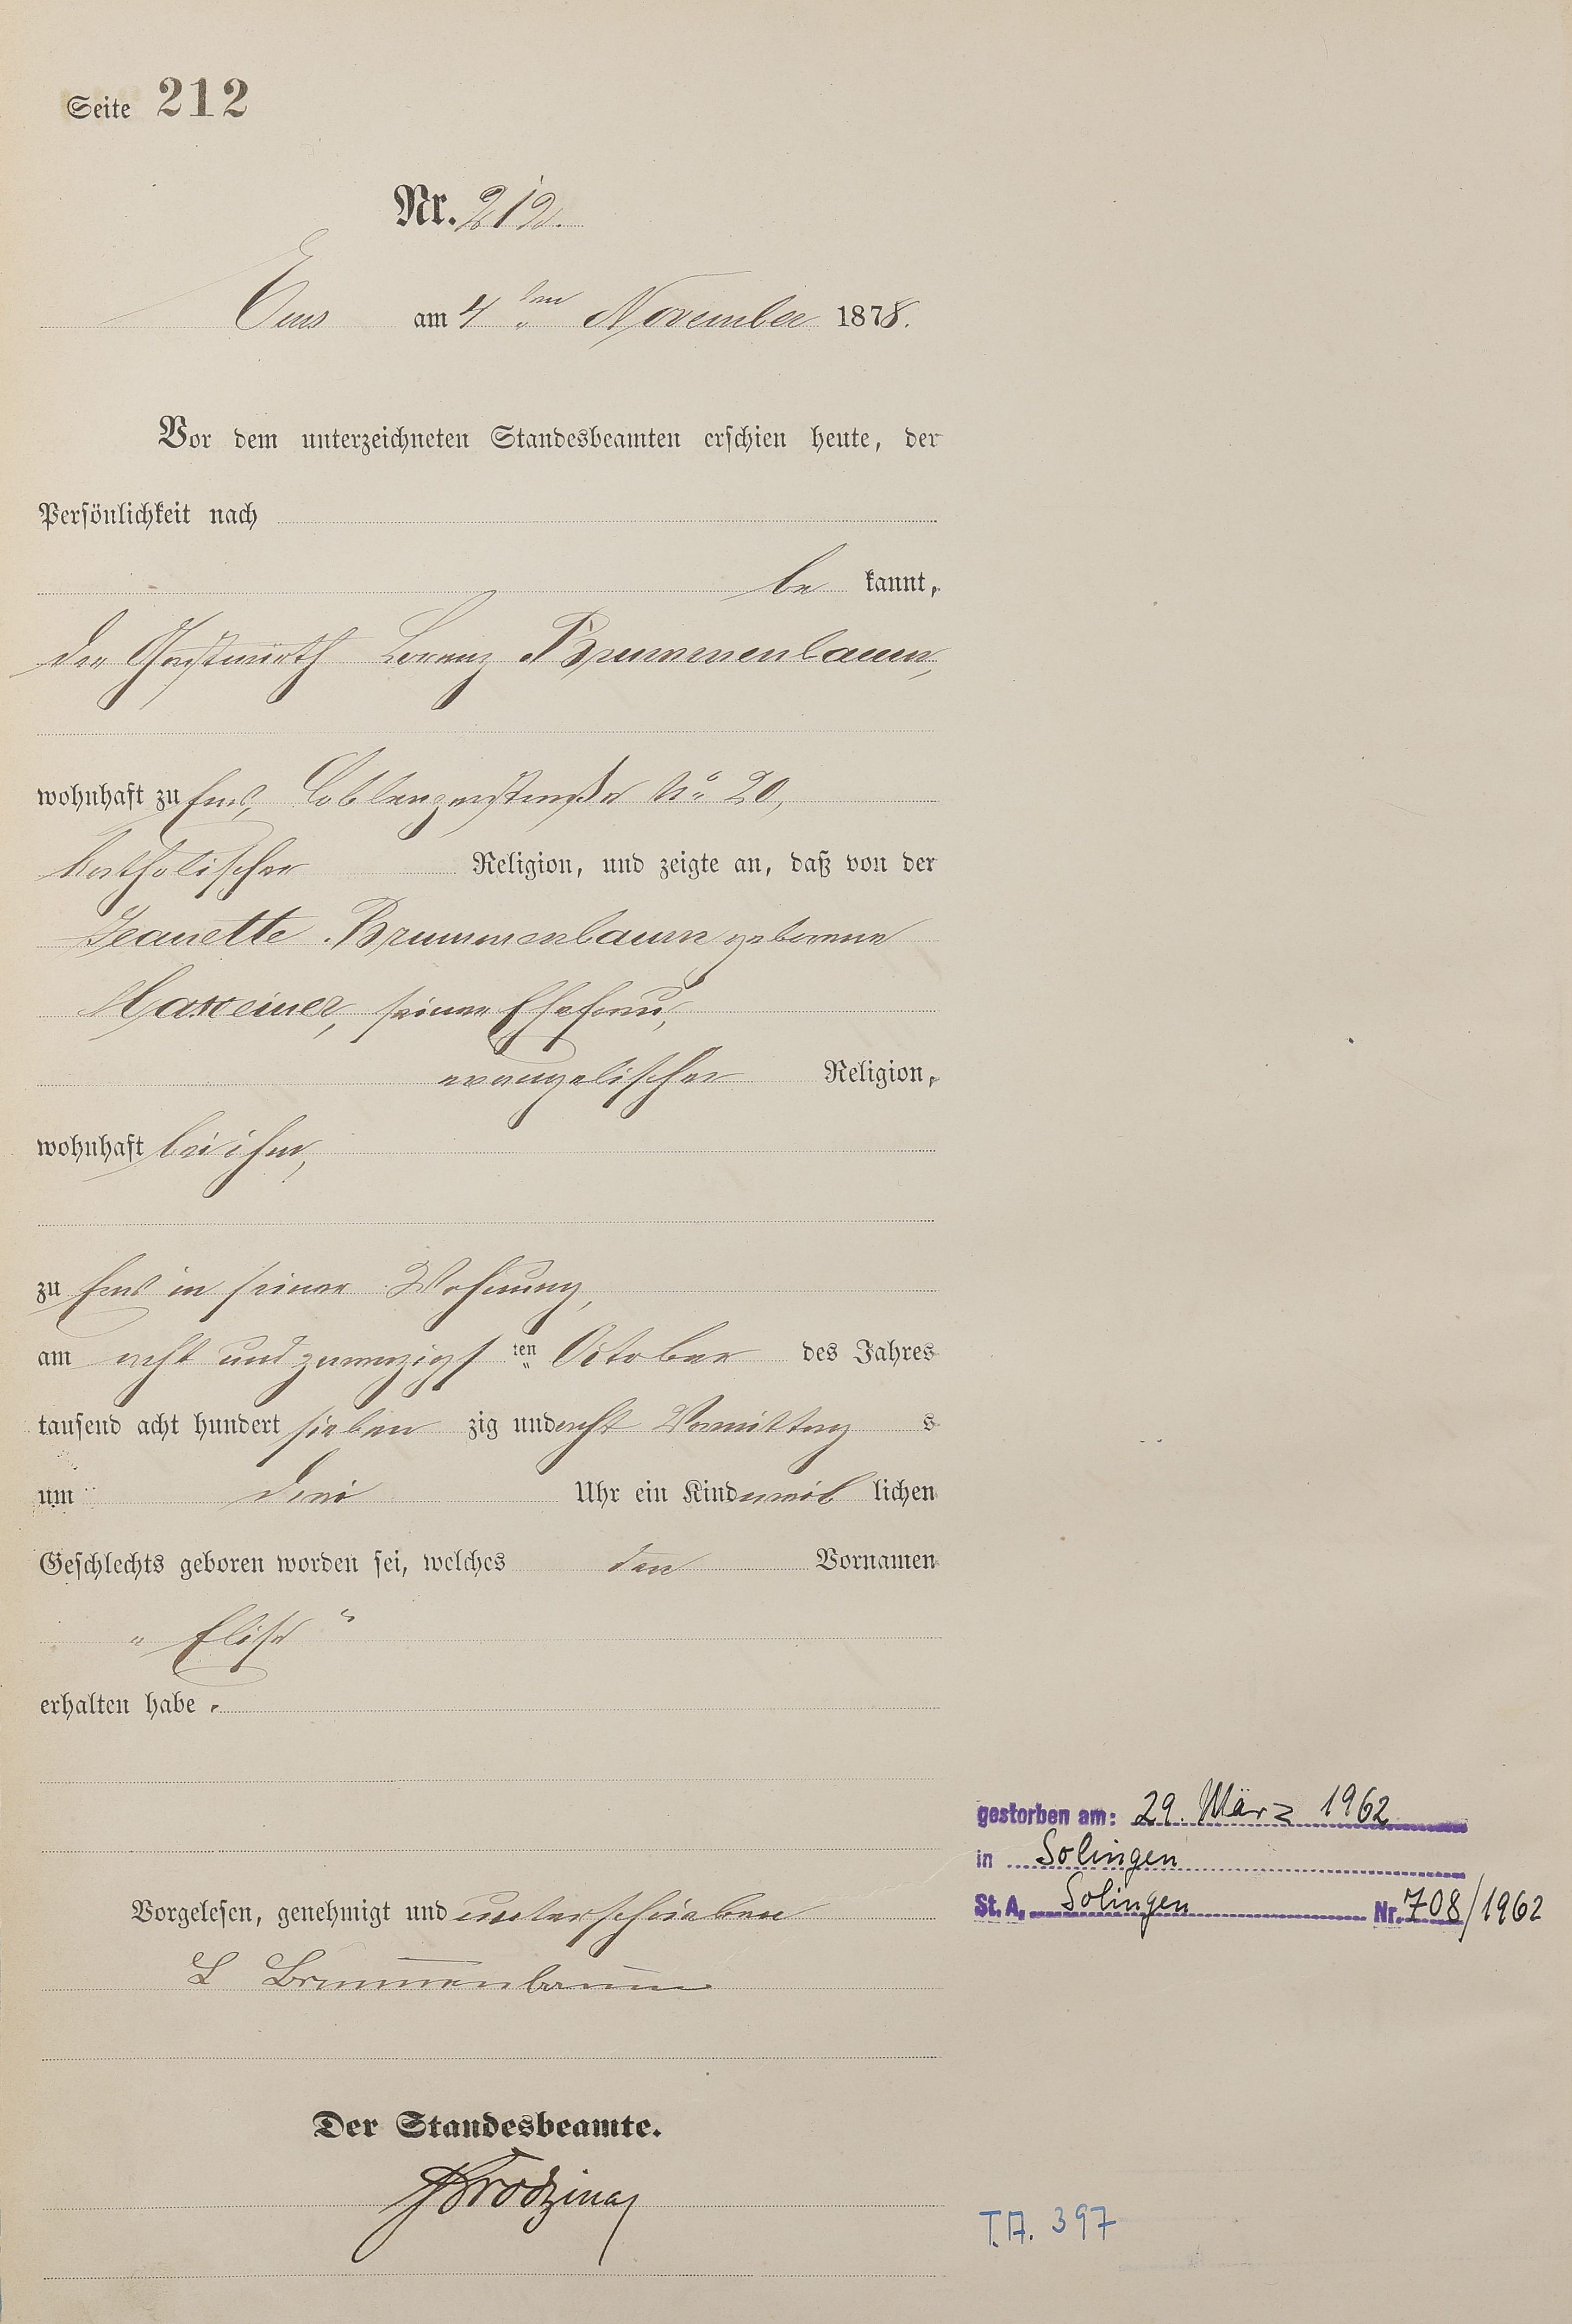 Seite 212
Nr. 212.
Ems am 4ten November 1878.
Vor dem unterzeichneten Standesbeamten erschien heute, der
Persönlichkeit nach
be kannt,
der Gastwirth Lorenz Brummenbaum,
wohnhaft zu Ems, Coblenzerstraße No 20,
katholischer Religion, und zeigte an, daß von der
Jeanette Brummenbaum geborene
Haxeiner, seiner Ehefrau,
evangelischer Religion,
wohnhaft bei ihm,
zu Ems in seiner Wohnung,
am acht und zwanzigs ten October des Jahres
tausend acht hundert sieben zig und acht Vormittag s
um drei Uhr ein Kind weib lichen
Geschlechts geboren worden sei, welches den Vornamen
„ Elise "
erhalten habe.
gestorben am: 29. März 1962
in Solingen
St. A. Solingen Nr. 708/1962
Vorgelesen, genehmigt und unterschrieben
L Brummenbaum
Der Standesbeamte.
T.A. 397